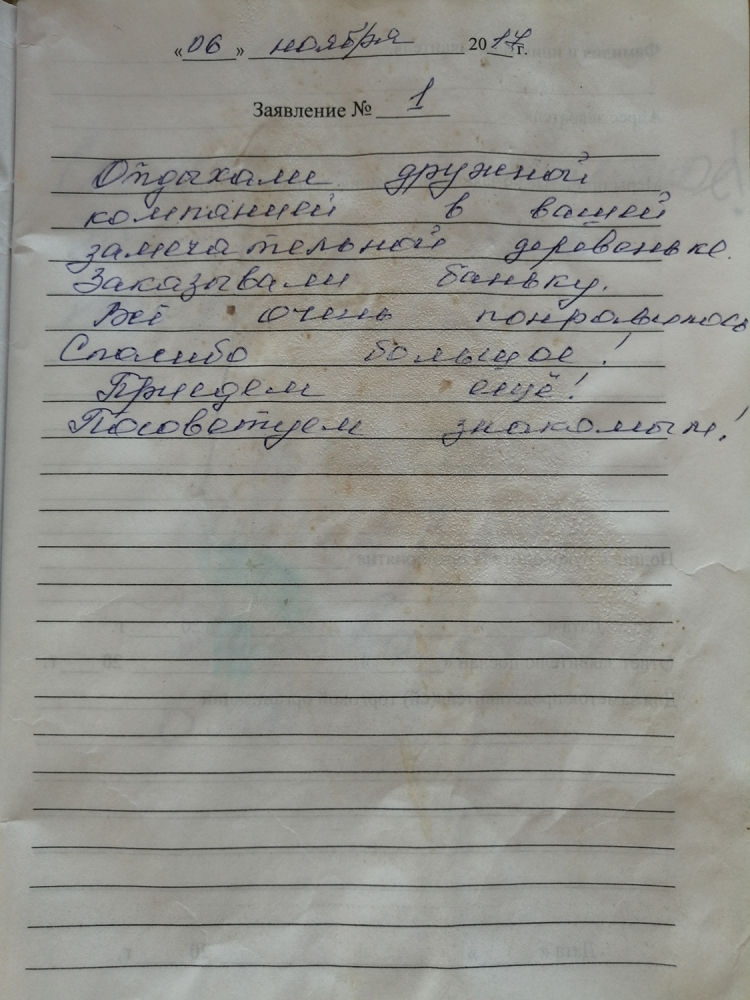 «06» ноября 2017 г.
Заявление № 1
Отдыхали дружной
компанией в вашей
замечательной деревеньке.
Заказывали баньку.
Всё очень понравилось
Спасибо большое!
Приедем ещё!
Посоветуем знакомым!